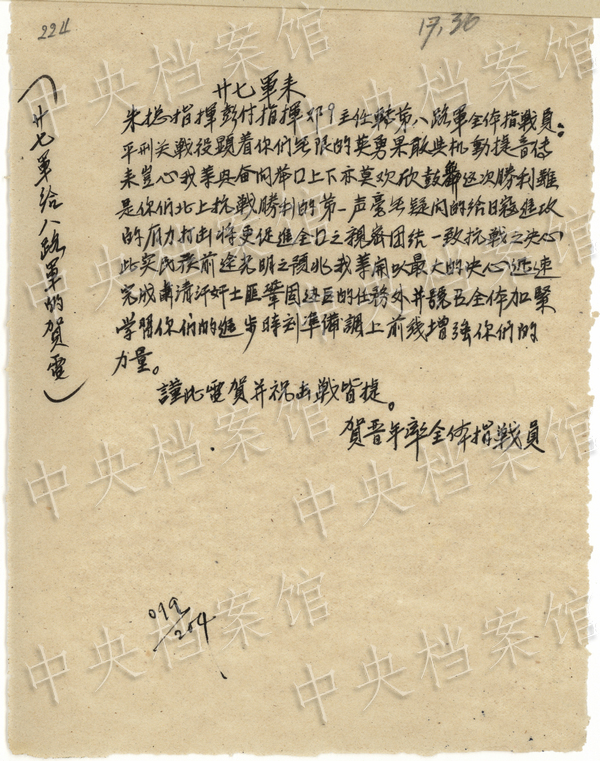 224
17,36
廿七軍来
朱總指揮彭付指揮邓主任轉第八路軍全体指戰員：
平型关战役顕着你们無限的英勇果敢与机動捷音傳
来豈心我等与奋同举口上下亦莫欢欣鼓舞这次勝利雖
是你们北上抗戰勝利的第一声毫無疑问的给日寇進攻
的有力打击将更促進全口之親密团结一致抗戰之决心
此实民族前途光明之预兆我等南以最大的决心迅速
完成肅清汗奸土匪鞏固边区的任務外并号召全体加緊
学習你们的進步時刻準備調上前线增強你们的
力量。
謹此電賀并祝击戰皆捷。
賀晋年率全体指戰員
（廿七軍给八路軍的賀電）
019/204
中央档案馆